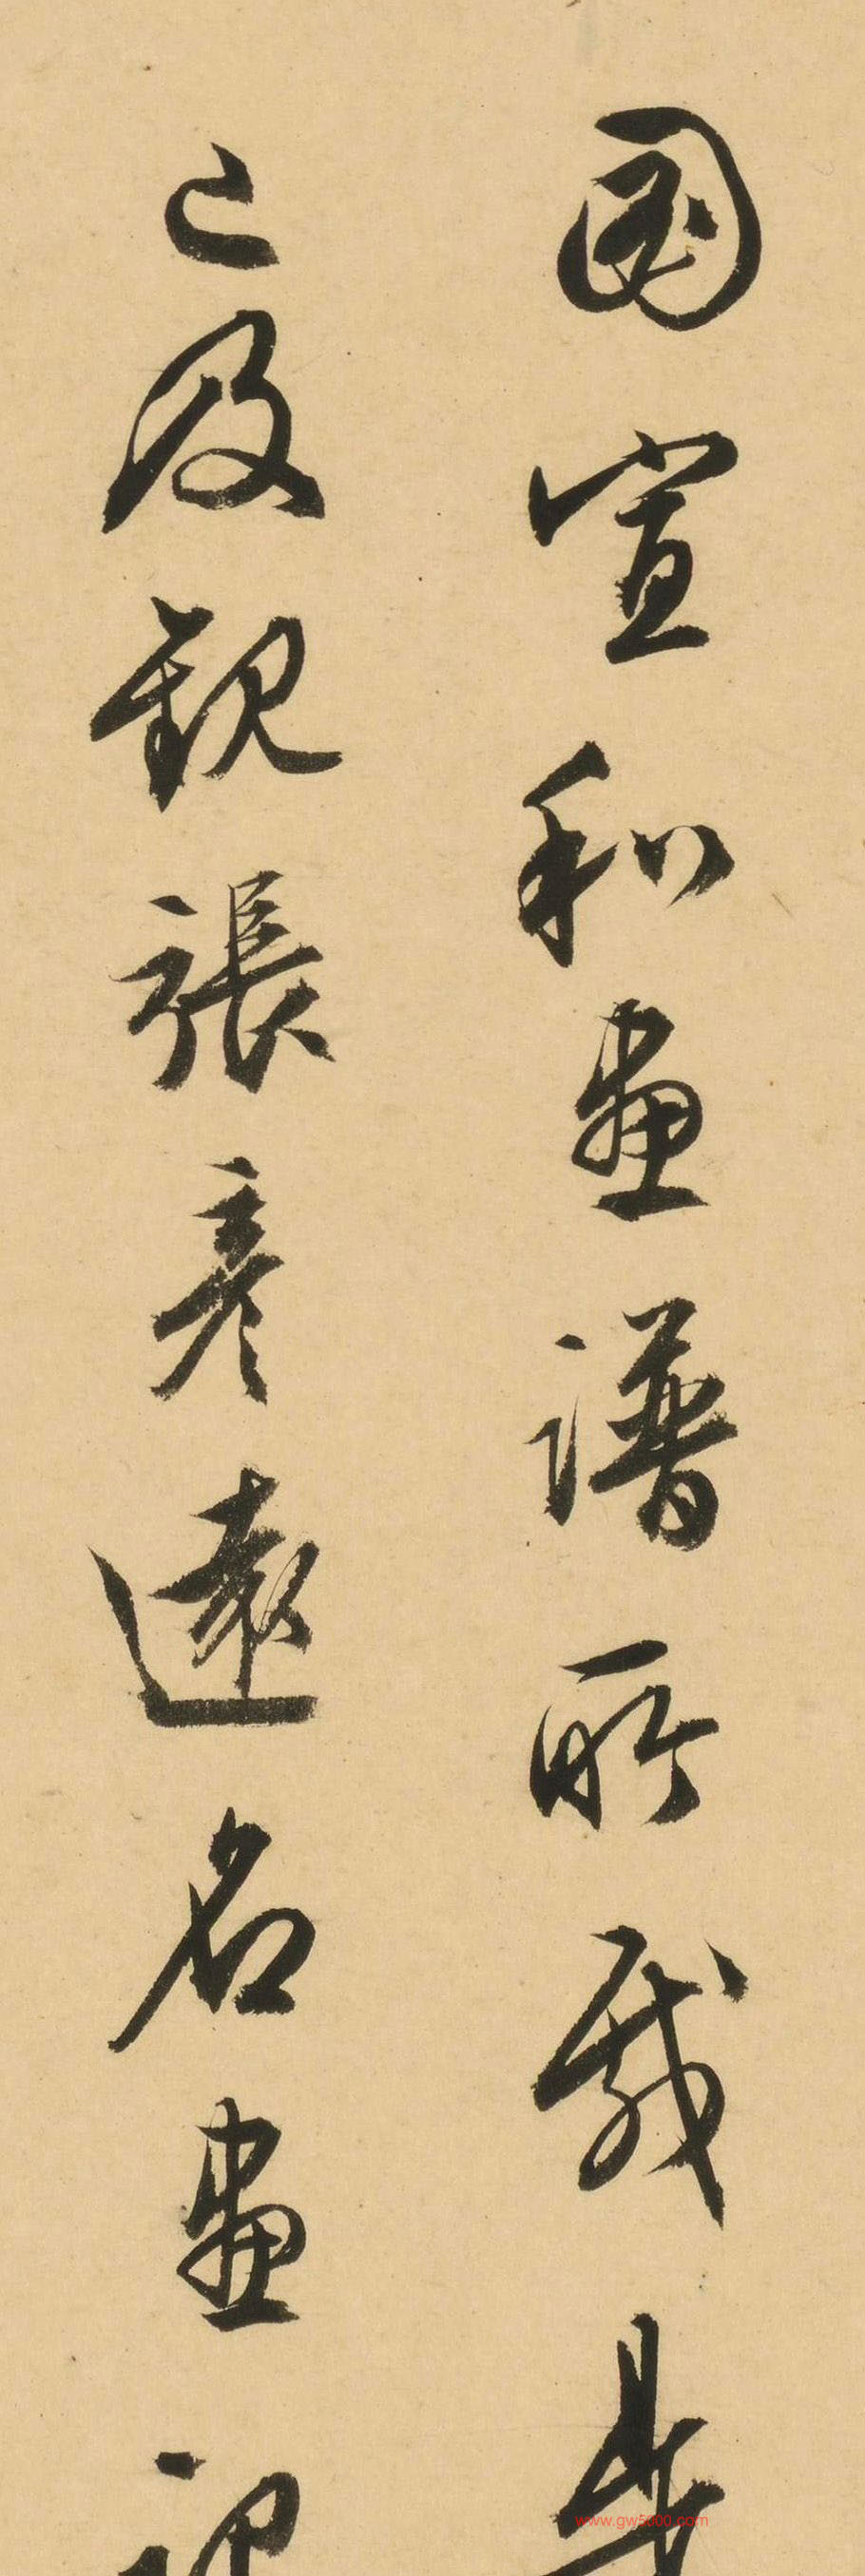 國宣和畫譜所載
之及觀張彥遠名畫記
www.gw5000.com